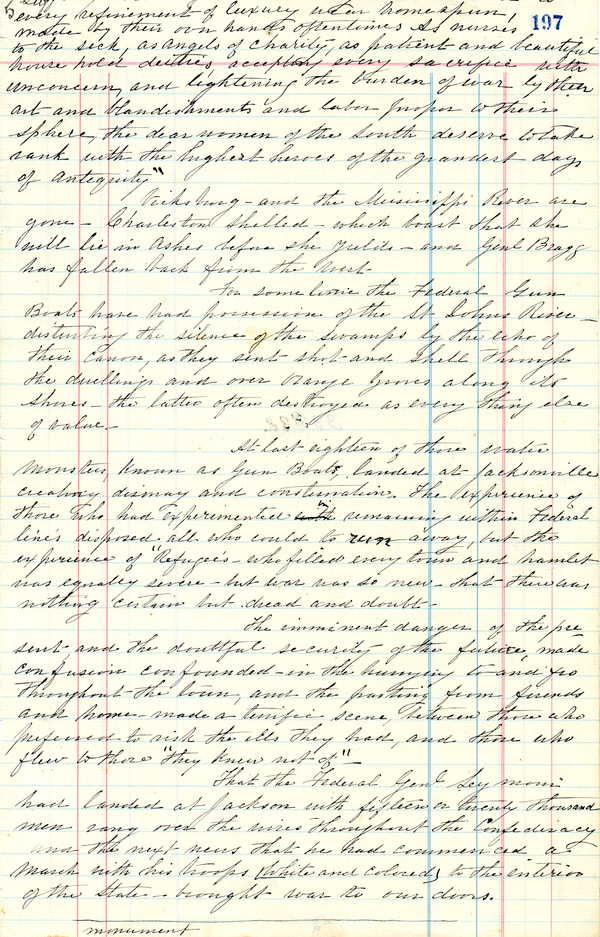 197
every refinement of luxury wear homespun,
made by their own hands oftentimes As nurses
to the sick, as angels of charity, as patient and beautiful
house hold deities accepting every sacrifice with
unconcern, and lightening the burden of war by their
art and blandishments and labor proper to their
sphere, the dear women of the South deserve to take
rank with the highest heroes of the grandest days
of antequity"
Vicksburg - and the Mississippi River are
gone - Charleston shelled - which boast that she
will lie in Ashes before she yields - and Genl Bragg
has fallen back from the West
For some time the Federal Gun
Boats have had possession of the St Johns River -
disturbing the silence of the swamps by the echo of
their canon, as they sent shot and shell through
the dwellings and over orange groves along its
shores - the latter often destroyed as every thing else
of value -
At last eighteen of those water
Monsters, known as Gun Boats, landed at Jacksonville
creating dismay and consternation. The experience of
those who had experimented by remaining within Federal
lines disposed all who could to run away, but the
experience of "Refugees - who filled every town and hamlet
was equally severe - but war was so new - that there was
nothing certain but dread and doubt -
The imminent danger of the pre
sent and the doubtful security of the future, made
confusion confounded - in the hurrying to and fro
throughout the town, and the parting from friends
and home - made a terrific scene, between those who
preferred to risk the ills they had, and those who
flew to those "they knew not of" -
That the Federal Genl Seymour
had landed at Jackson with fifteen or twenty thousand
men rang over the wires throughout the Confederacy
and the next news that he had commenced a
march with his troops (white and colored) to the interior
of the State - brought war to our doors.
monument